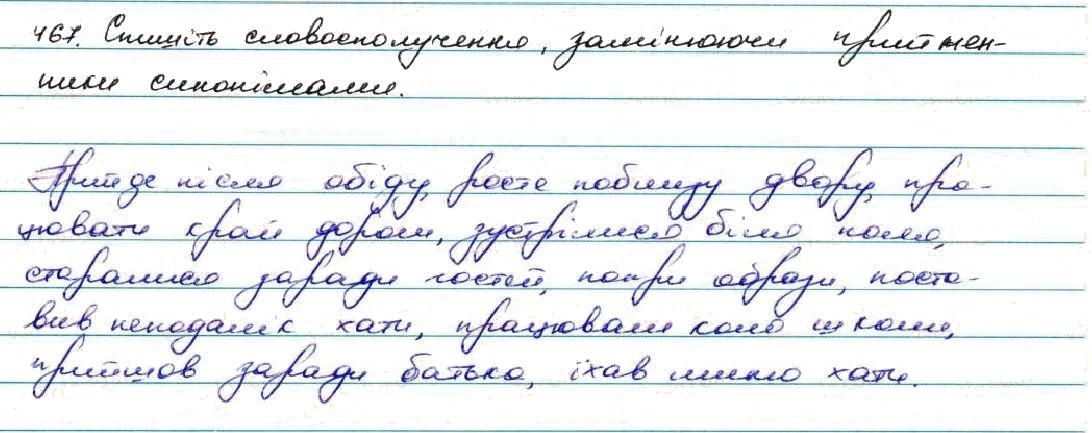 467. Спишіть словосполучення, замінюючи приймен-
ники синонімами.
Прийде після обіду, росте поблизу двору, пра-
цювати край дороги, зустрілися біля поля,
старалися заради гостей, попри образи, поста-
вив неподалік хати, працювали коло школи,
прийшов заради батька, їхав мимо хати.